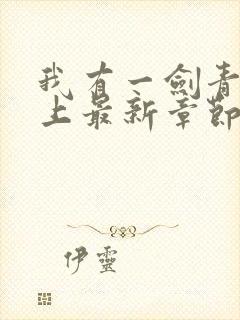 我有一劍青
上最新章節
伊靈